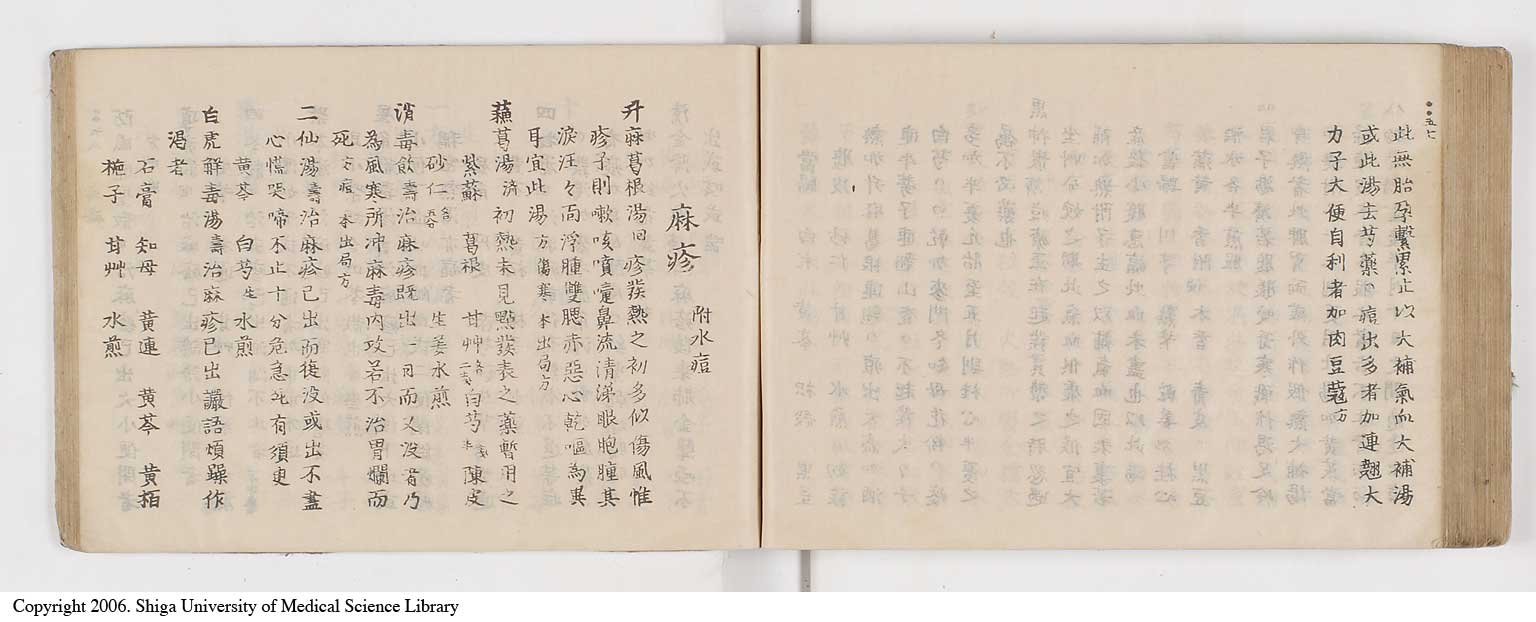 五七
此無胎孕繫累止以大補氣血大補湯
或此湯去芍藥〇痘出多者加連翹大
力子大便自利者加肉豆蔻方
麻疹 附水痘
升麻葛根湯回疹發熱之初多似傷風惟
疹子則嗽咳噴嚔鼻流清涕眼胞腫其
淚汪々面浮腫雙腮赤惡心乾嘔為異
耳宜此湯方傷寒本出局方
蘓葛湯濟初熱未見點發表之藥暫用之
紫蘇 葛根 甘艸 白芍 陳皮
砂仁 生姜水煎
消毒飲壽治麻疹既出一日而又没者乃
為風寒所冲麻毒内攻若不治胃爛而
死方痘 本出局方
二仙湯壽治麻疹已出而復没或出不盡
心慌哭啼不止十分危急死有須臾
黄芩 白芍生 水煎
白虎解毒湯壽治麻疹已出讝語煩躁作
渇者
石膏 知母 黄連 黄芩 黄栢
梔子 甘艸 水煎
Copyright 2006. Shiga University of Medical Science Library